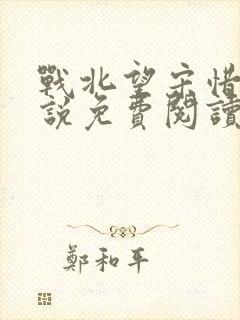 戰北望宋惜
說免費閱讀
鄭和平